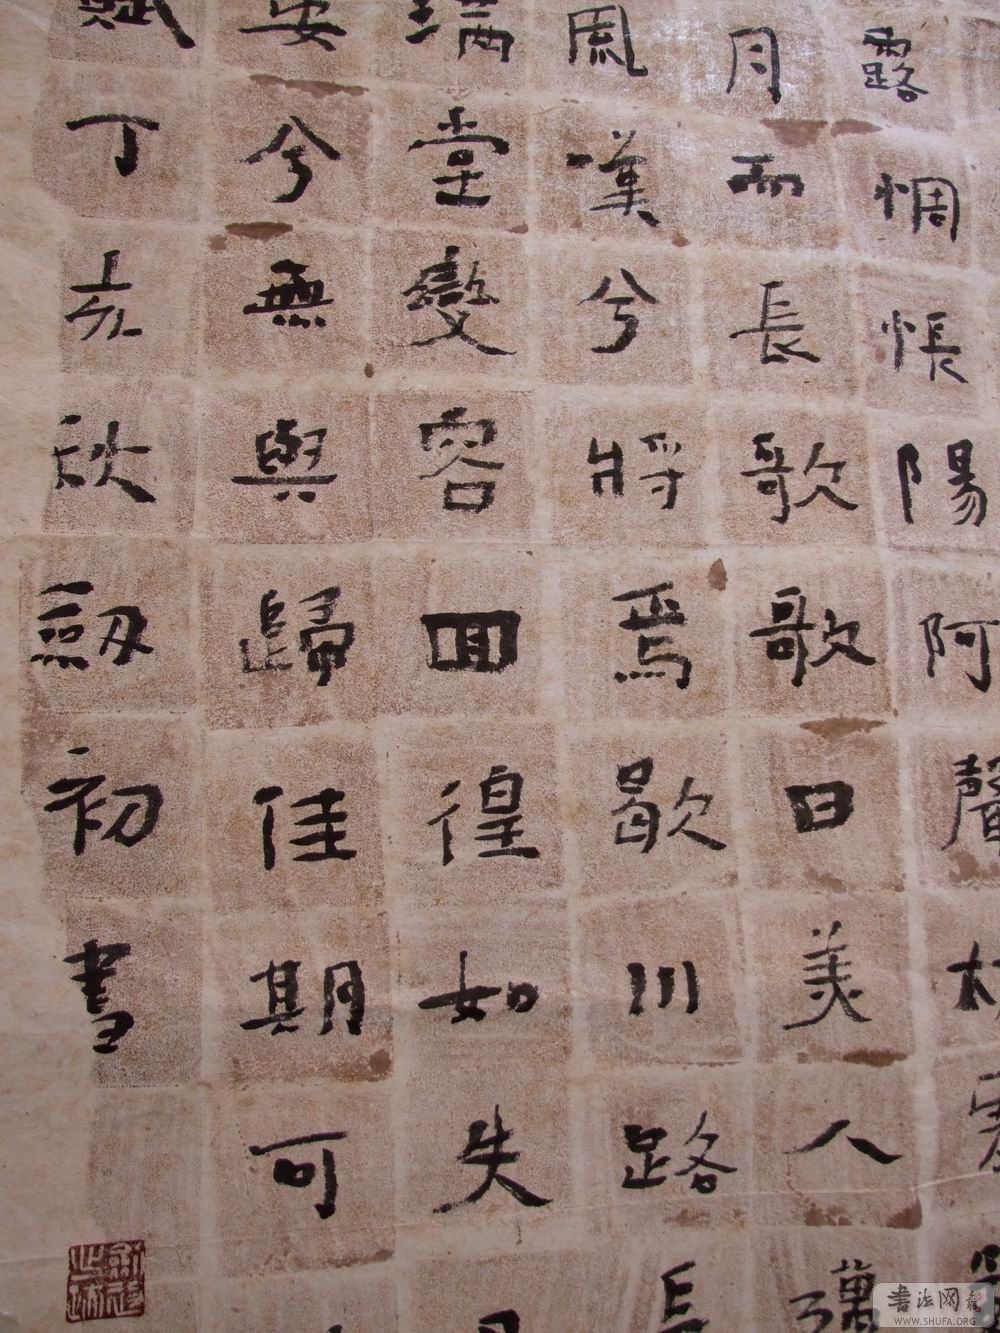 露惆悵陽阿聲林
月而長歌歌曰美人邁
風嘆兮將焉歇川路長
滿堂變容回徨如失
晏兮無與歸佳期可
賦丁亥秋劔初書
书法网
WWW.SHUFA.ORG